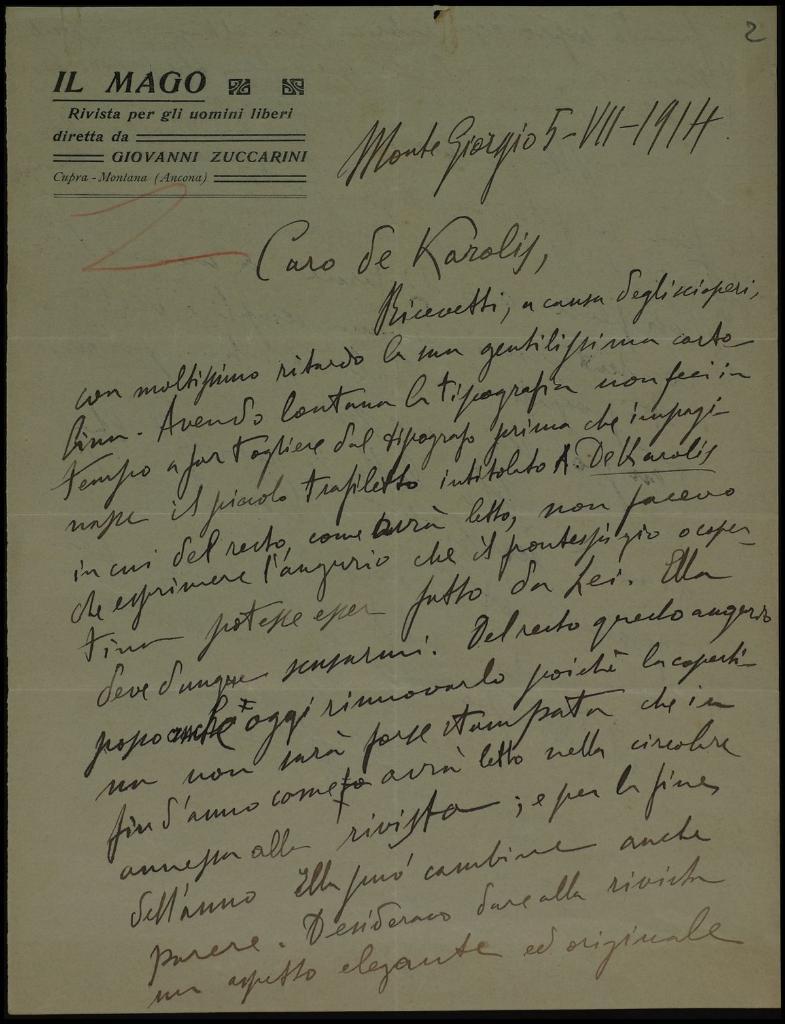 2
IL MAGO
Rivista per gli uomini liberi
diretta da
GIOVANNI ZUCCARINI
Cupra-Montana (Ancona)
Monte Giorgio 5-VII-1914
Caro de Karolis,
Ricevetti, a causa degli scioperi,
con moltissimo ritardo la sua gentilissima carto-
lina. Avendo lontana la tipografia non feci in
tempo a far togliere dal tipografo prima che impagi-
nasse il piccolo trafiletto intitolato A. De Karolis
in cui del resto, come avrà letto, non facevo
che esprimere l'augurio che il frontespizio o coper-
tina potesse esser fatto da Lei. Ella
deve dunque scusarmi. Del resto questo augurio
posso anche oggi rinnovarlo poichè la coperti-
na non sarà forse stampata che in
fin d'anno come avrà letto nella circolare
annessa alla rivista; e per la fine
dell'anno Ella può cambiare anche
parere. Desideravo dare alla rivista
un aspetto elegante ed originale